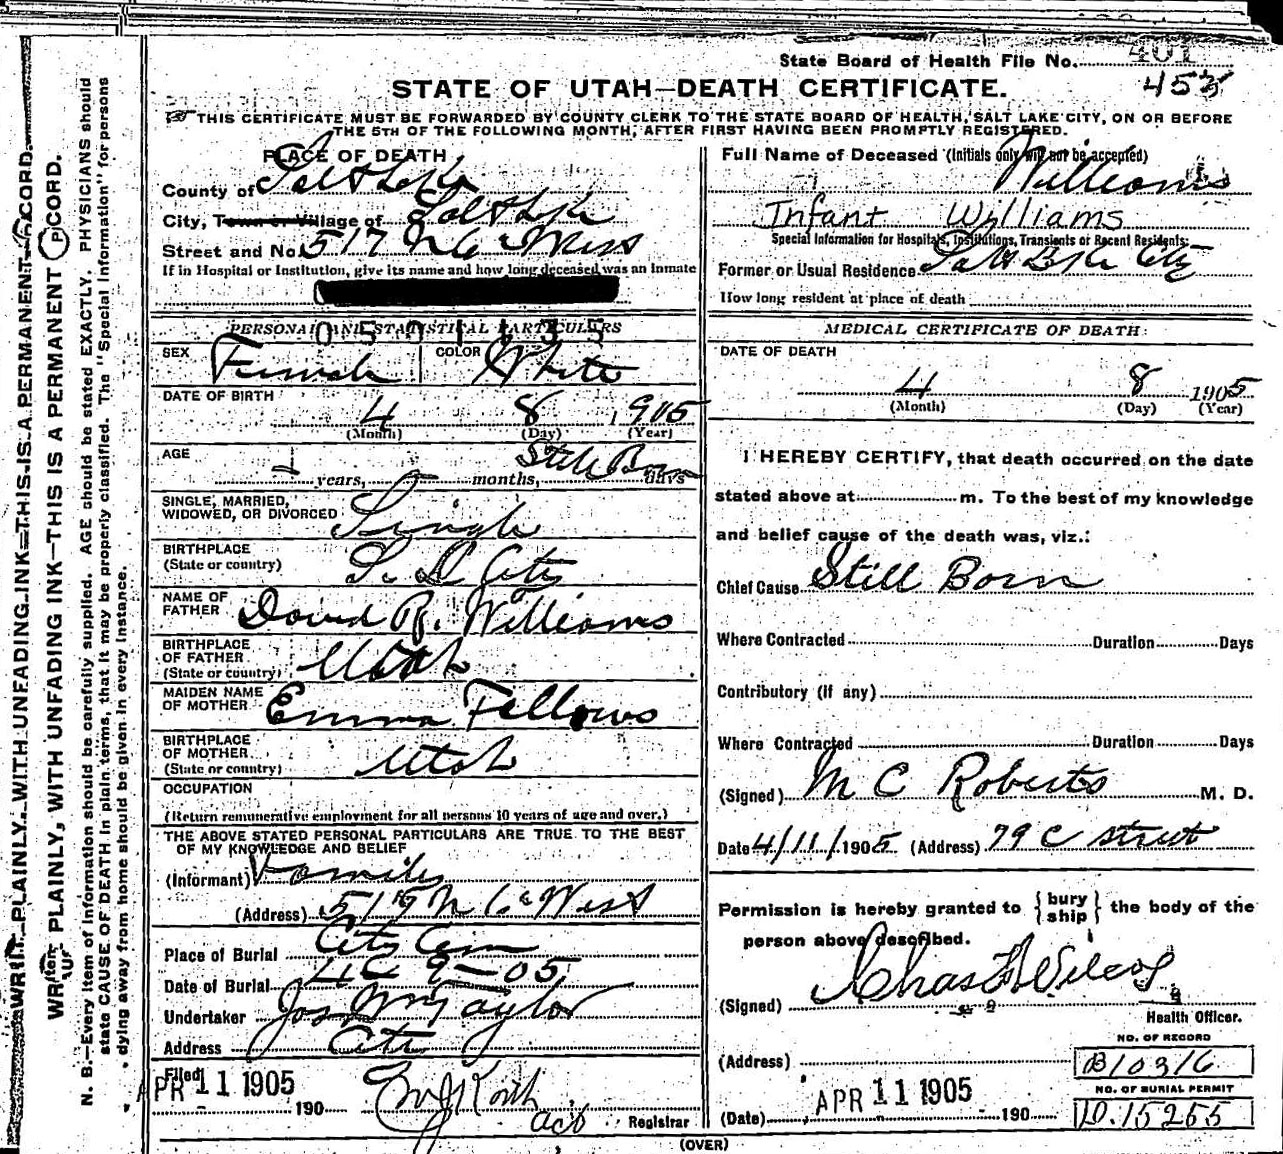 State Board of Health File No. 401
453
STATE OF UTAH—DEATH CERTIFICATE.
THIS CERTIFICATE MUST BE FORWARDED BY COUNTY CLERK TO THE STATE BOARD OF HEALTH, SALT LAKE CITY, ON OR BEFORE
THE 5TH OF THE FOLLOWING MONTH, AFTER FIRST HAVING BEEN PROMPTLY REGISTERED.
PLACE OF DEATH
County of Salt Lake
City, Town or Village of Salt Lake
Street and No. 517 N 6 West
If in Hospital or Institution, give its name and how long deceased was an Inmate
Full Name of Deceased (Initials only will not be accepted)
Williams
Infant Williams
Special Information for Hospitals, Institutions, Transients or Recent Residents:
Former or Usual Residence Salt Lake City
How long resident at place of death
PERSONAL AND STATISTICAL PARTICULARS
SEX Female COLOR White
DATE OF BIRTH 4 8 1905
(Month) (Day) (Year)
AGE Still Born
years, months, days
SINGLE, MARRIED,
WIDOWED, OR DIVORCED Single
BIRTHPLACE
(State or country) S. L City
NAME OF
FATHER David R. Williams
BIRTHPLACE
OF FATHER
(State or country) Utah
MAIDEN NAME
OF MOTHER Emma Fellows
BIRTHPLACE
OF MOTHER
(State or country) Utah
OCCUPATION
(Return remunerative employment for all persons 10 years of age and over.)
THE ABOVE STATED PERSONAL PARTICULARS ARE TRUE TO THE BEST
OF MY KNOWLEDGE AND BELIEF
(Informant) Family
(Address) N 6 West
Place of Burial City Cem
Date of Burial 4 9-05
Undertaker Jos Wm Taylor
Address City
Filed
APR 11 1905
190
Registrar
MEDICAL CERTIFICATE OF DEATH:
DATE OF DEATH
4 8 1905
(Month) (Day) (Year)
I HEREBY CERTIFY, that death occurred on the date
stated above at m. To the best of my knowledge
and belief cause of the death was, viz.:
Chief Cause Still Born
Where Contracted Duration Days
Contributory (if any)
Where Contracted Duration Days
(Signed) M C Roberts M. D.
Date 4/11/1905 (Address) 79 C street
Permission is hereby granted to { bury ship } the body of the
person above described.
(Signed) Chas F Wilcox
Health Officer.
NO. OF RECORD
(Address) B10316
NO. OF BURIAL PERMIT
APR 11 1905
(Date) 190 D.15255
(OVER)
WRITE PLAINLY, WITH UNFADING INK—THIS IS A PERMANENT RECORD.
WRITE PLAINLY, WITH UNFADING INK—THIS IS A PERMANENT RECORD.
N. B.—Every item of information should be carefully supplied. AGE should be stated EXACTLY. PHYSICIANS should
state CAUSE OF DEATH in plain terms, that it may be properly classified. The "Special Information" for persons
dying away from home should be given in every instance.